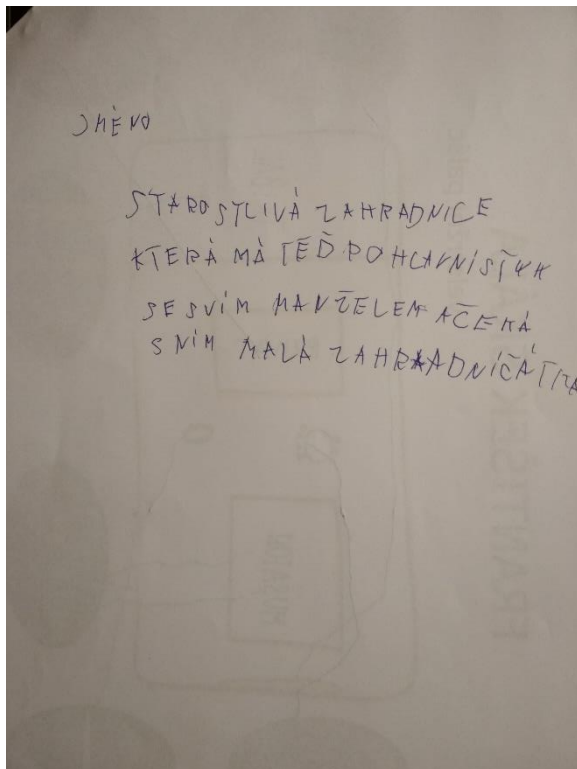 JMÉNO
STAROSTLIVÁ ZAHRADNICE
KTERÁ MÁ TĚĎ POHLAVNÍSTYK
SE SVÍM MANŽELEM AČEKÁ
SNÍM MALÁ ZAHRAADNÍČÁTKA
FRANTIŠEK